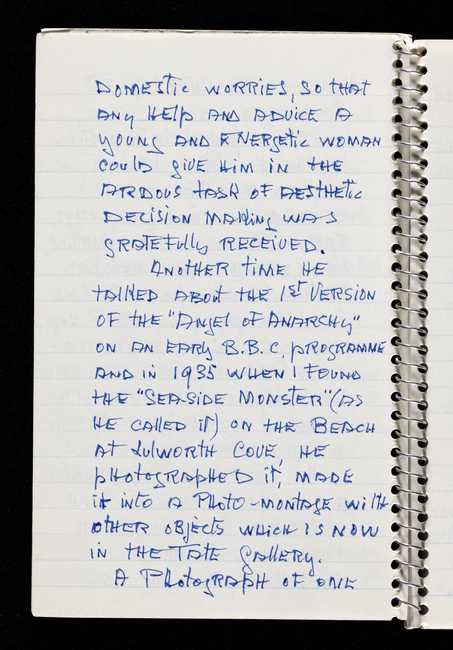 DOMESTIC WORRIES, SO THAT
ANY HELP AND ADVICE A
YOUNG AND ENERGETIC WOMAN
COULD GIVE HIM IN THE
ARDOUS TASK OF AESTHETIC
DECISION MAKING WAS
GRATEFULLY RECEIVED.
ANOTHER TIME HE
TALKED ABOUT THE 1ST VERSION
OF THE "ANGEL OF ANARCHY"
ON AN EARLY B.B.C. PROGRAMME
AND IN 1935 WHEN I FOUND
THE "SEA-SIDE MONSTER" (AS
HE CALLED IT) ON THE BEACH
AT LULWORTH COVE, HE
PHOTOGRAPHED IT, MADE
IT INTO A PHOTO-MONTAGE WITH
OTHER OBJECTS WHICH IS NOW
IN THE TATE GALLERY.
A PHOTOGRAPH OF ONE